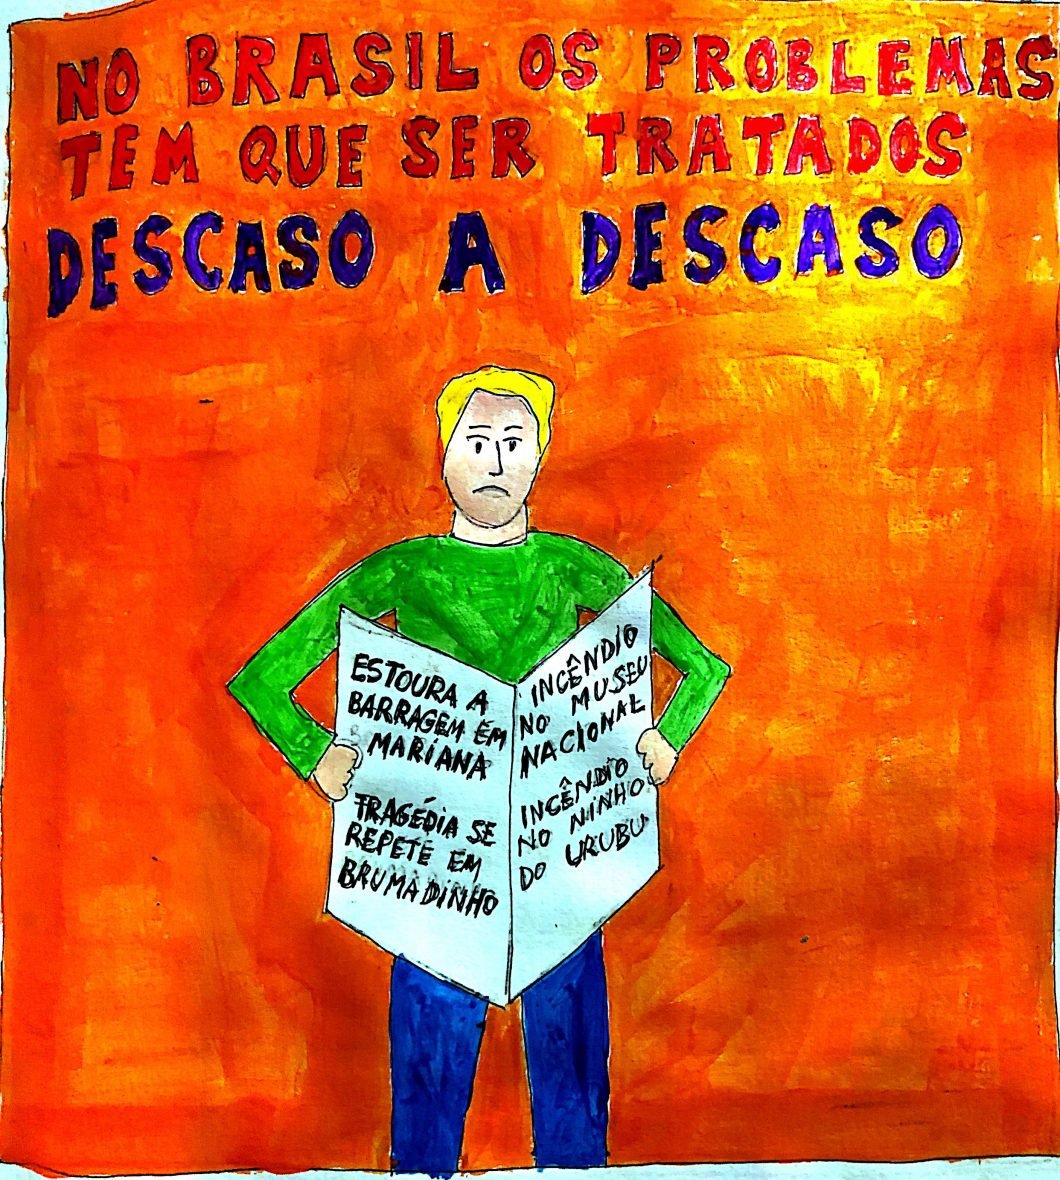 NO BRASIL OS PROBLEMAS
TEM QUE SER TRATADOS
DESCASO A DESCASO
ESTOURA A
BARRAGEM EM
MARIANA
TRAGÉDIA SE
REPETE EM
BRUMADINHO
INCÊNDIO
NO MUSEU
NACIONAL
INCÊNDIO
NO NINHO
DO URUBU